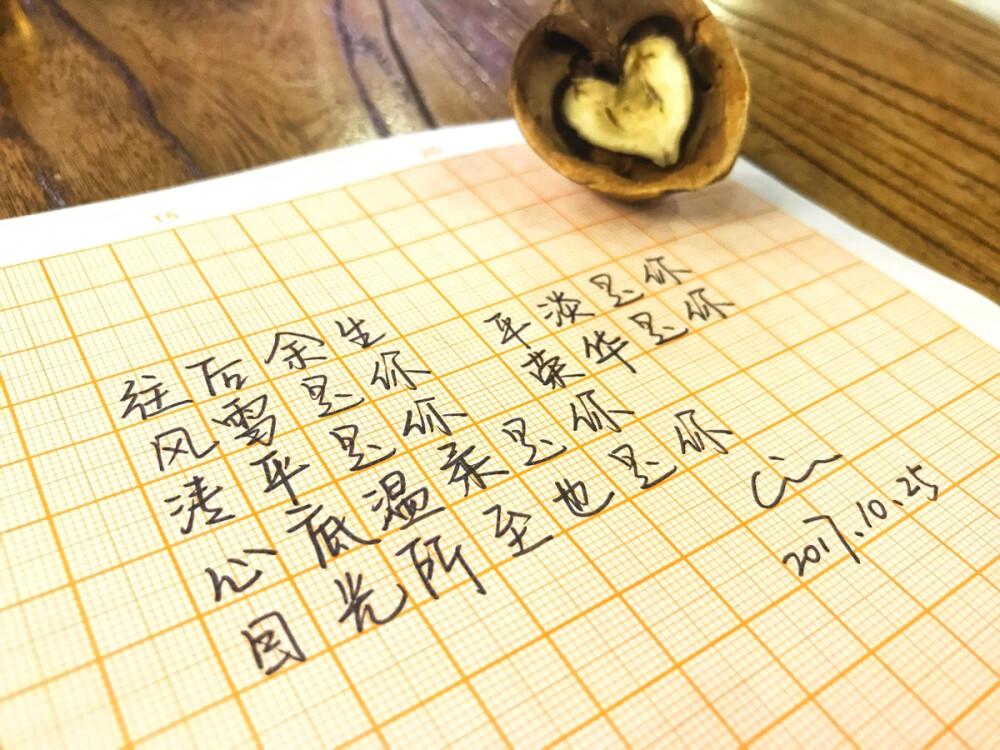 15
往后余生
风雪是你 平淡是你
清平是你 荣华是你
心底温柔是你
目光所至也是你
2017.10.25